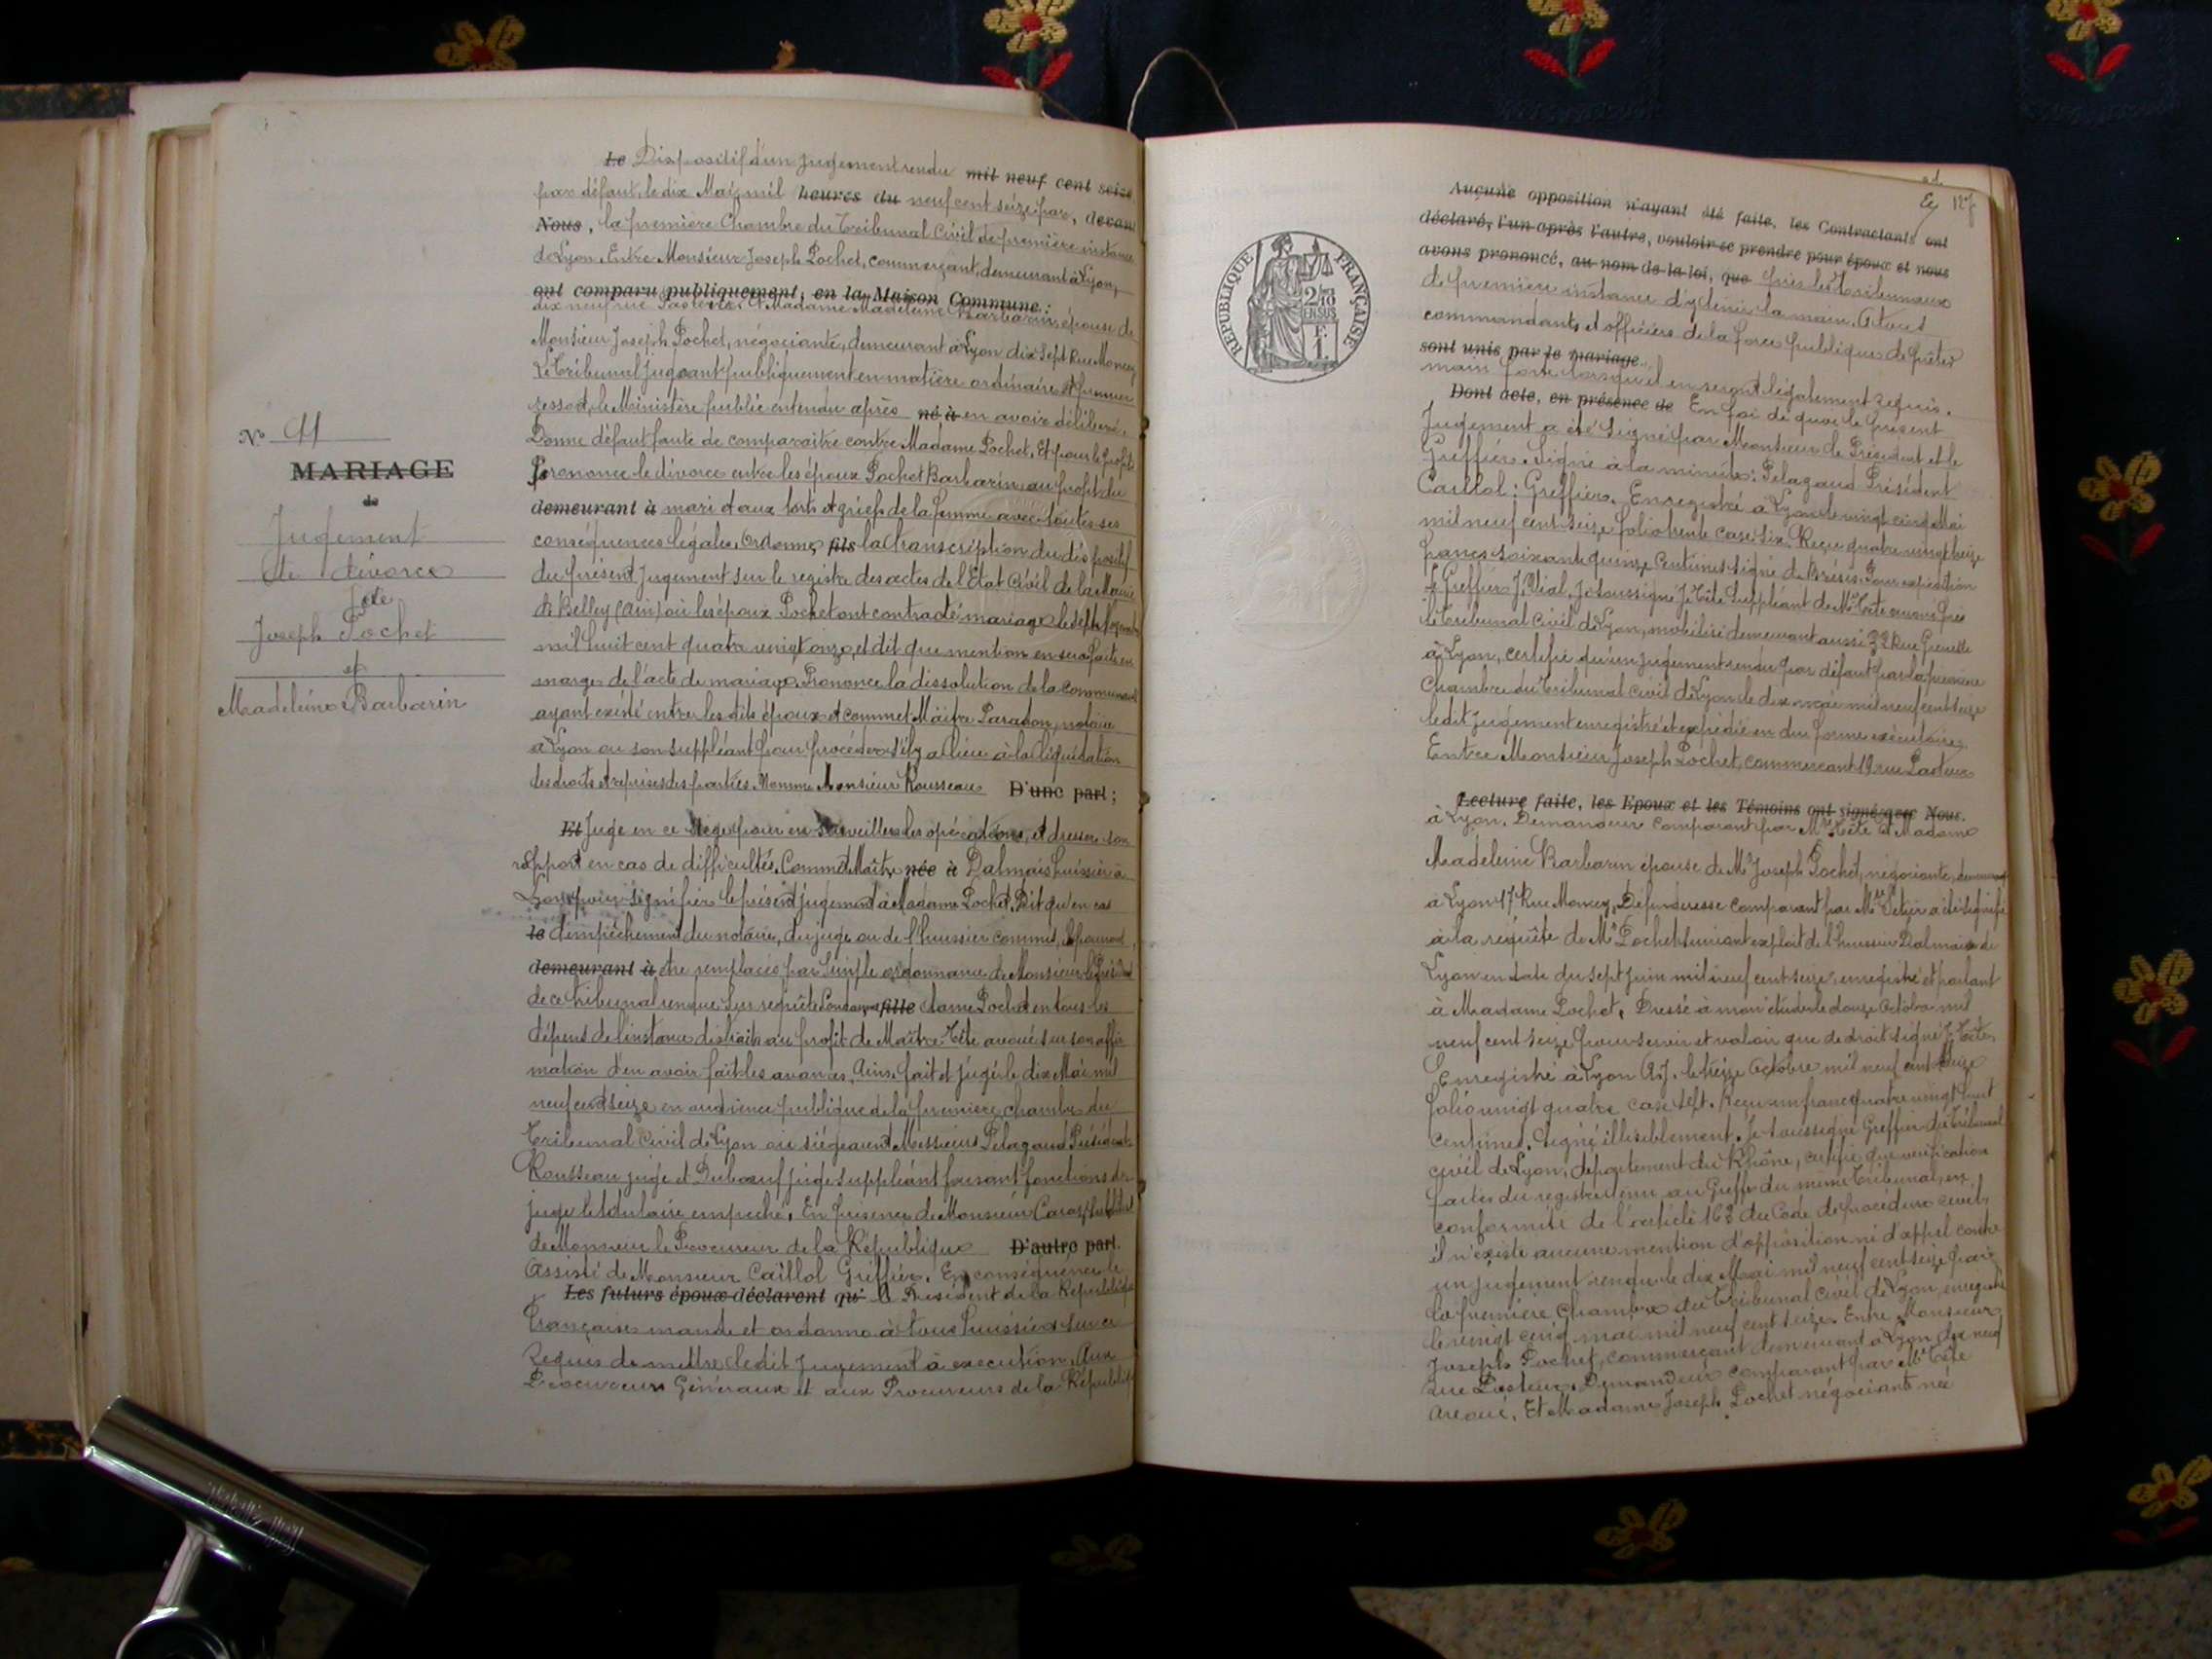 Nº 11
MARIAGE
de
Jugement
de divorce
de
Joseph Pochet
et
Madeleine Barbarin
Le Dispositif d'un jugement rendu mil neuf cent seize
par défaut, le dix Mai mil heures du neuf cent seize par, devant
Nous, la première Chambre du Tribunal Civil de première instance
de Lyon. Entre Monsieur Joseph Pochet, commerçant, demeurant à Lyon,
ont comparu publiquement, en la Maison Commune:
dix neuf rue Pasteur. Et Madame Madeleine Barbarin, épouse de
Monsieur Joseph Pochet, négociante, demeurant à Lyon dix Sept Rue Moncey
Le Tribunal jugeant publiquement en matière ordinaire et premier
ressort, le Ministère public entendu après né à en avoir délibéré.
Donne défaut faute de comparaître contre Madame Pochet, Et pour le profit
Prononce le divorce entre les époux Pochet Barbarin au profit du
demeurant à mari et aux torts et griefs de la femme avec toutes ses
conséquences légales, Ordonne fils la transcription du dispositif
du présent Jugement sur le registre des actes de l'Etat Civil de la Mairie
de Belley (Ain) où les époux Pochet ont contracté mariage le sept
mil huit cent quatre vingt onze, et dit que mention en sera faite en
marge de l'acte de mariage. Prononce la dissolution de la communauté
ayant existé entre les dits époux et commet Maître Paradon, notaire
à Lyon ou son suppléant pour procéder s'il y a lieu à la liquidation
des droits et reprises des parties. Nomme Monsieur Rousseau D'une part;
Et Juge en ce siège pour en surveiller les opérations, et dresser son
rapport en cas de difficultés. Commet Maître née à Dalmais huissier à
Lyon pour signifier le présent jugement à Madame Pochet. Dit qu'en cas
le d'empêchement du notaire, du juge ou de l'huissier commis, ils pourront
demeurant à être remplacés par simple ordonnance de Monsieur le Président
de ce tribunal rendue sur requête Condamne fille dame Pochet en tous les
dépens de l'instance distraits au profit de Maître Tête avoué sur son affir
mation d'en avoir fait les avances. Ainsi fait et jugé le dix Mai mil
neuf cent seize en audience publique de la première chambre du
Tribunal Civil de Lyon où siégeaient Messieurs Pelagaud Président
Rousseau juge et Duboeuf juge suppléant faisant fonctions de
juge le titulaire empêché. En présence de Monsieur Substitut
de Monsieur le Procureur de la République D'autre part.
Assisté de Monsieur Caillol Greffier. En conséquence le
Les futurs époux déclarent qu' le Président de la République
Française mande et ordonne à tous huissiers sur ce
requis de mettre ledit jugement à exécution. Aux
Procureurs Généraux et aux Procureurs de la République
127
RÉPUBLIQUE FRANÇAISE
2/10
EN SUS
F.
1.
Aucune opposition n'ayant été faite, les Contractants ont
déclaré, l'un après l'autre, vouloir se prendre pour époux et nous
avons prononcé, au nom de la loi, que près les Tribunaux
de première instance d'y tenir la main. A tous
commandants et officiers de la force publique de prêter
sont unis par le mariage.
main forte lorsqu'ils en seront légalement requis.
Dont acte, en présence de En foi de quoi le présent
Jugement a été signé par Monsieur le Président et le
Greffier. Signé à la minute: Pelagaud Président
Caillol: Greffier. Enregistré à Lyon le vingt cinq Mai
mil neuf cent seize folio trente case six. Reçu quatre vingt
francs soixante quinze Centimes signé de Brésis. Pour expédition
le Greffier J. Vial. Je soussigné J. Tête Suppléant de Me Tête avoué près
le Tribunal Civil de Lyon, mobilisé demeurant aussi 32 Rue Grenette
à Lyon, certifie qu'un jugement rendu par défaut par la première
Chambre du Tribunal Civil de Lyon le dix mai mil neuf cent seize
ledit jugement enregistré et expédié en due forme exécutoire.
Entre Monsieur Joseph Pochet, commerçant 19 rue Pasteur
Lecture faite, les Epoux et les Témoins ont signé avec Nous.
à Lyon. Demandeur comparant par Me Tête Et Madame
Madeleine Barbarin épouse de Mr Joseph Pochet, négociante, demeurant
à Lyon 17 Rue Moncey, Défenderesse comparant par Me a été signifié
à la requête de Mr Pochet suivant exploit de l'huissier Dalmais de
Lyon en date du sept juin mil neuf cent seize, enregistré et parlant
à Madame Pochet. Dressé à mon étude le douze Octobre mil
neuf cent seize pour servir et valoir que de droit signé J. Tête,
Enregistré à Lyon A.J. le treize Octobre mil neuf cent seize
folio vingt quatre case sept. Reçu un franc quatre vingt huit
centimes. Signé illisiblement. Je soussigné Greffier du Tribunal
civil de Lyon, département du Rhône, certifie que vérification
faites du registre tenu au Greffe du même Tribunal, en
conformité de l'article 163 du Code de procédure civil,
il n'existe aucune mention d'opposition ni d'appel contre
un jugement rendu le dix Mai mil neuf cent seize par
la première Chambre du Tribunal Civil de Lyon, enregistré
le vingt cinq mai mil neuf cent seize. Entre Monsieur
Joseph Pochet, commerçant demeurant à Lyon dix neuf
rue Pasteur. Demandeur comparant par Me Tête
Avoué. Et Madame Joseph Pochet négociante née